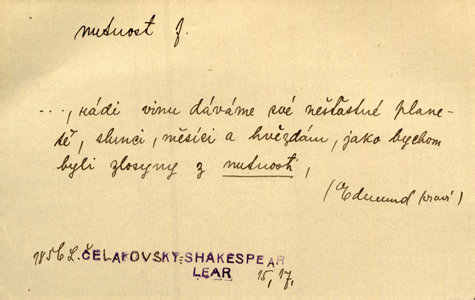 nutnost f.
..., rádi vinu dáváme své nešťastné plane-
tě, slunci, měsíci a hvězdám, jako bychom
byli zlosyny z nutnosti,
(Edmund praví)
1856 L. ČELAKOVSKY-SHAKESPEAR
LEAR 15, 17,